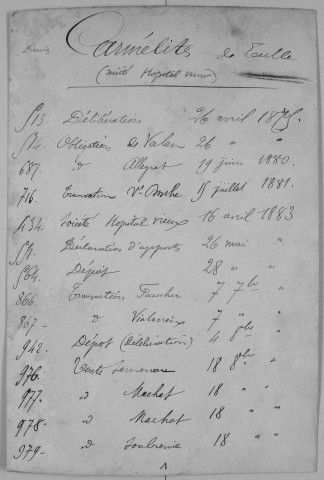 Carmélites de Tulle
(Société Hopital vieux)
513. Délibération 26 avril 1875.
514. Obligation de Valen 26 " "
687. d° Allegrat 19 juin 1880.
716. Transaction Vve 15 juillet 1881.
434. Société Hopital vieux 16 avril 1883
551. Déclaration d'apports 26 mai "
564. Dépôt 28 " "
866. Transaction Faucher 7 7bre "
867 - d° Vialaneix 7 " "
942. Dépôt (Délibération) 4 8bre "
976. Vente 18 8bre "
977. d° Machat 18 " "
978 - d° Machat 18 " "
979 - d° 18 " "
1